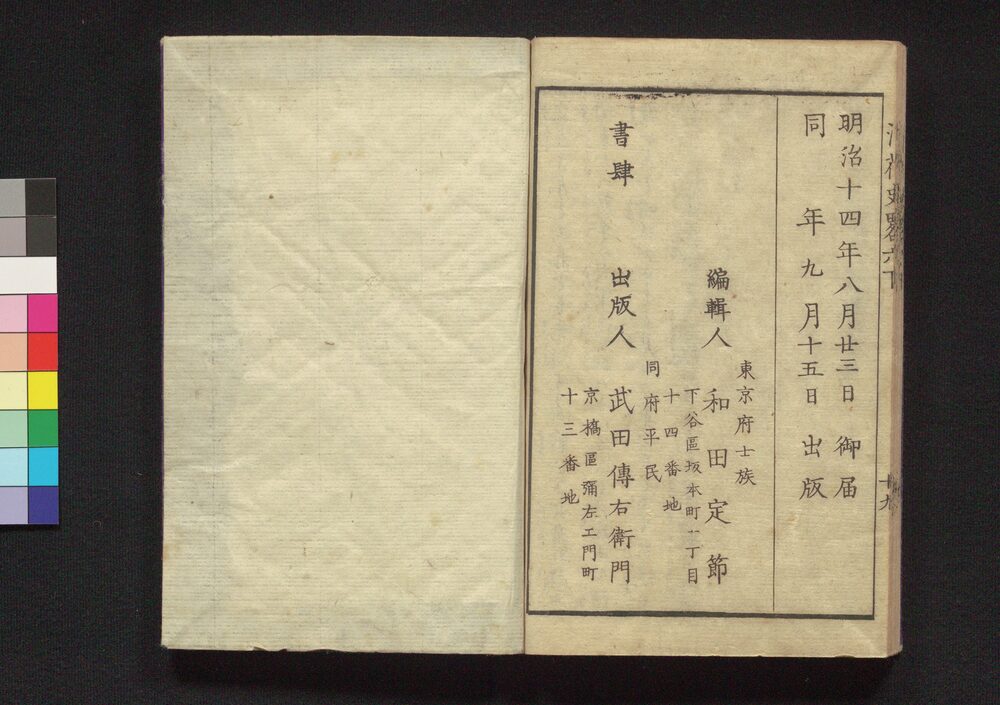 明治十四年八月廿三日 御届
同 年九月十五日 出版
東京府士族
編輯人 和田定節
下谷區坂本町一丁目
十四番地
同府平民
書肆 出版人 武田傳右衛門
京橋區彌左エ門町
十三番地
史畧六下
十九